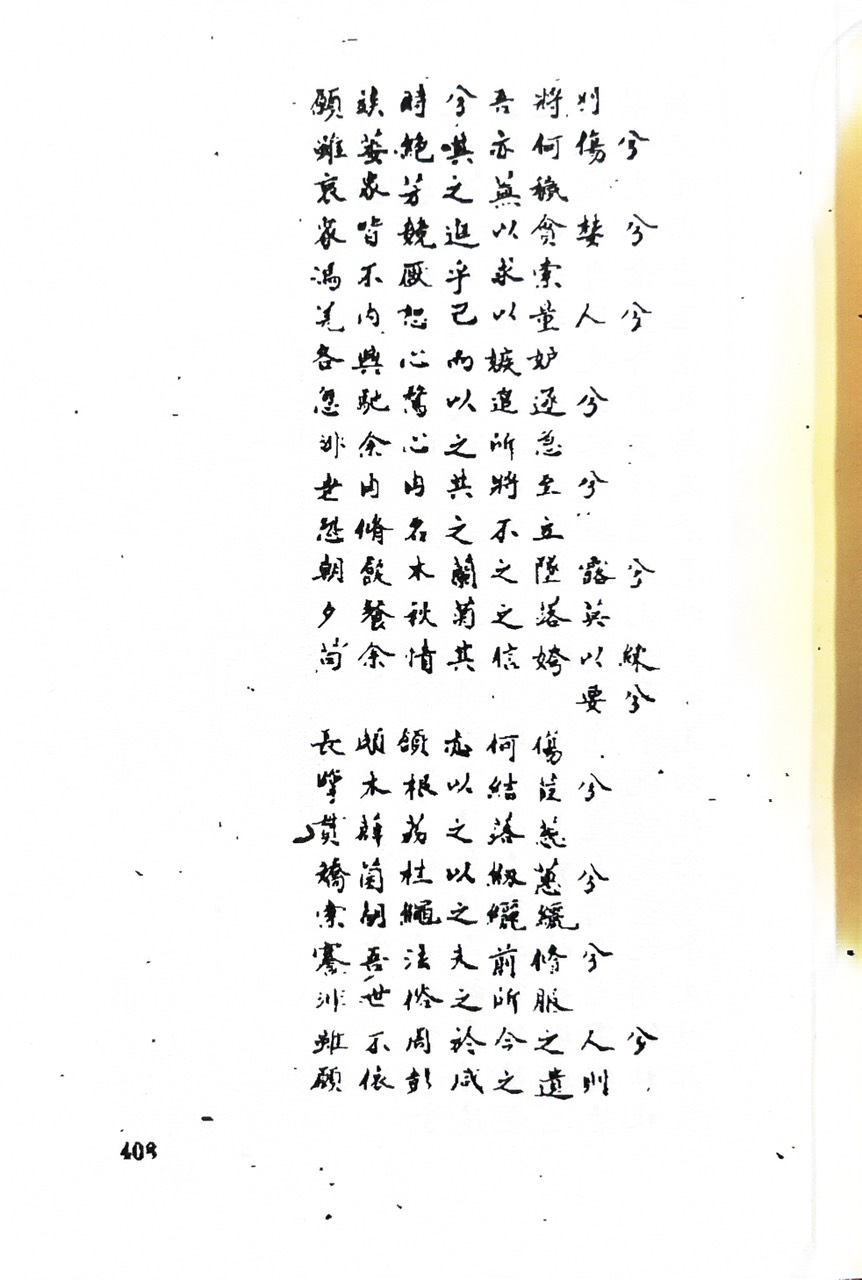 願竢時兮吾將刈
雖萎絕其亦何傷兮
哀眾芳之蕪穢
眾皆競進以貪婪兮
馮不厭乎求索
羌內恕己以量人兮
各興心而嫉妒
忽馳騖以追逐兮
非余心之所急
老冉冉其將至兮
恐脩名之不立
朝飲木蘭之墜露兮
夕餐秋菊之落英
苟余情其信姱以練
要兮
長顑頷亦何傷
擥木根以結茝兮
貫薜荔之落蕊
矯菌桂以紉蕙兮
索胡繩之纚纚
謇吾法夫前脩兮
非世俗之所服
雖不周於今之人兮
願依彭咸之遺則
408